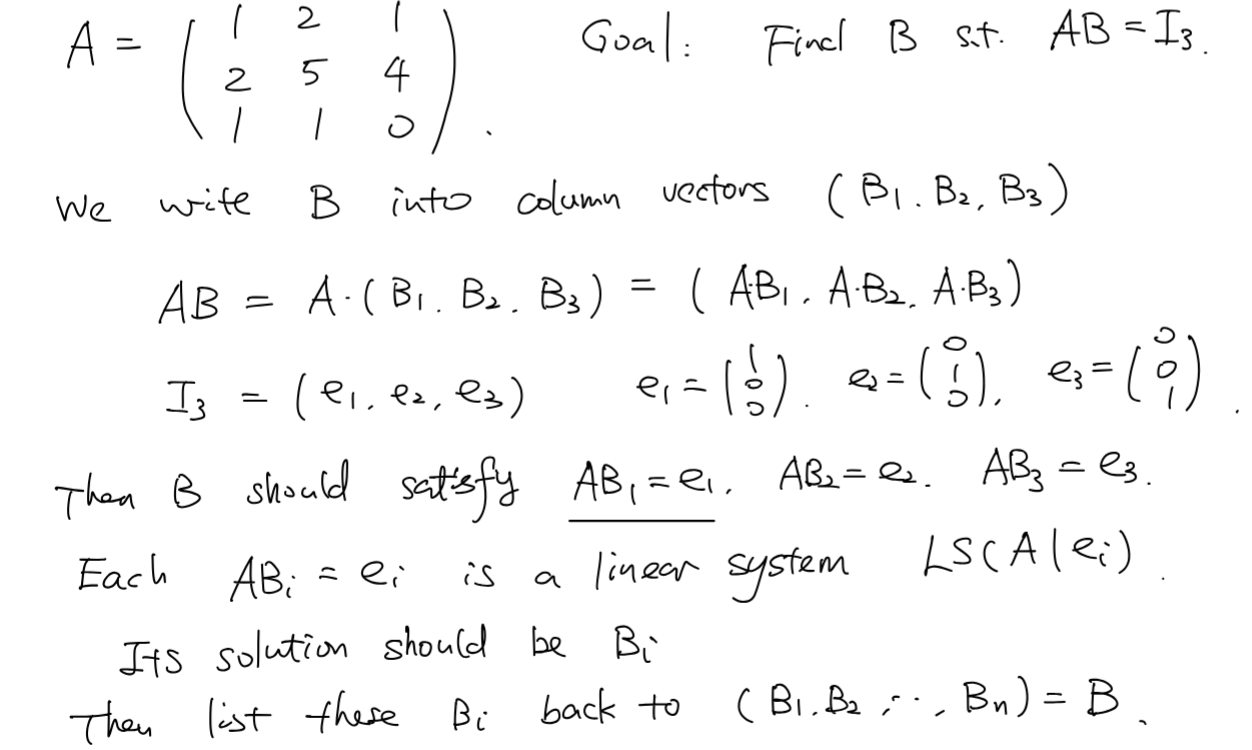 A = ( 1 2 1
2 5 4
1 1 0 ) . Goal: Find B s.t. AB = I₃.
We write B into column vectors (B₁. B₂, B₃)
AB = A·(B₁. B₂. B₃) = (A·B₁, A·B₂, A·B₃)
I₃ = (e₁, e₂, e₃) e₁ = (1 0 0). e₂ = (0 1 0), e₃ = (0 0 1).
Then B should satisfy AB₁ = e₁, AB₂ = e₂. AB₃ = e₃.
Each ABᵢ = eᵢ is a linear system LS(A|eᵢ).
Its solution should be Bᵢ
Then list these Bᵢ back to (B₁, B₂, ..., Bₙ) = B.